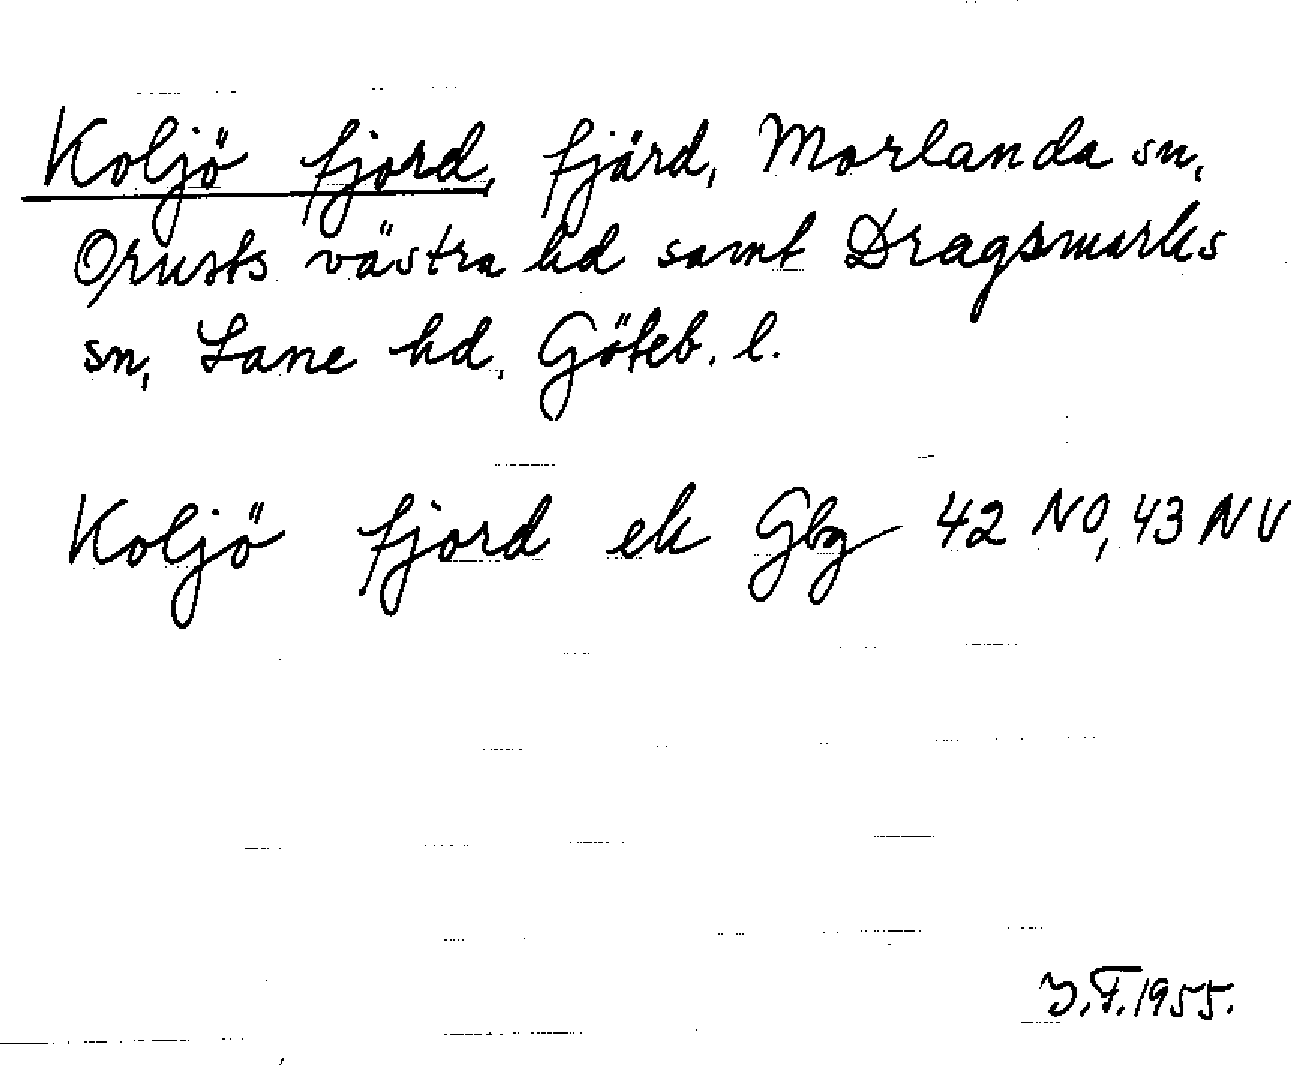 Koljö fjord, fjärd, Morlanda sn,
Orusts västra hd samt Dragsmarks
sn, Lane hd, Göteb. l.
Koljö fjord ek Gbg 42 NO, 43 NV
J.F. 1955.